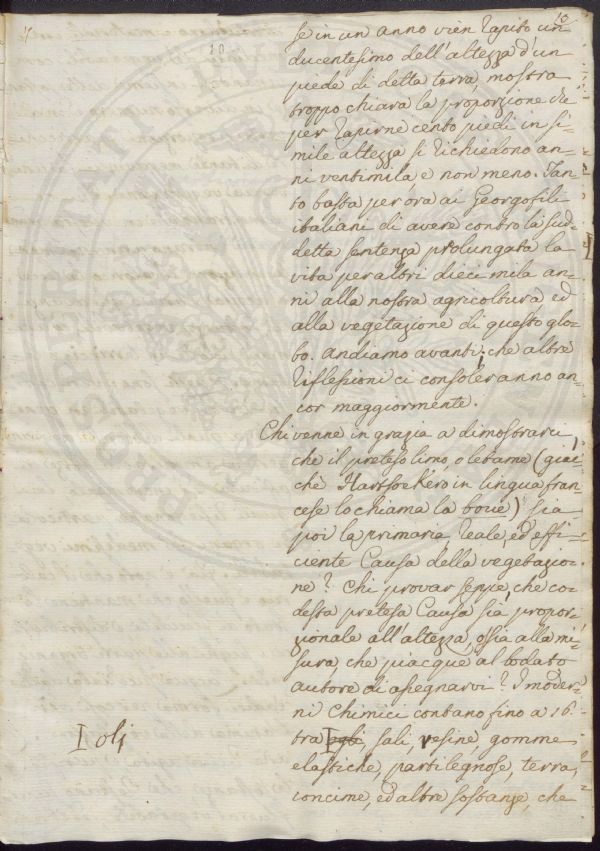 10
10
se in un anno vien rapito un
ducentesimo dell'altezza d'un
piede di detta terra, mostra
troppo chiara la proporzione che
per rapirne cento piedi in si-
mile altezza si richiedono an-
ni ventimila e non meno. Tan-
to basta per ora ai Georgofili
italiani di avere contro la sud-
detta sentenza prolungata la
vita per altri dieci mila an-
ni alla nostra agricoltura ed
alla vegetazione di questo glo-
bo. Andiamo avanti, che altre
riflessioni ci consoleranno an-
cor maggiormente.
Chi venne in grazia a dimostrarci,
che il preteso limo, o letame (giac-
chè Hartsoekero in lingua fran-
cese lo chiama la boue) sia
poi la primaria reale, ed effi-
ciente Causa della vegetazio-
ne? Chi provar seppe, che co-
desta pretesa Causa sia propor-
zionale all'altezza, ossia alla mi-
sura che piacque al lodato
autore di assegnarvi? I moder-
ni Chimici contano fino a 16.
tra sali, resine, gomme
elastiche, parti legnose, terra,
concime, ed altre sostanze, che
I olj